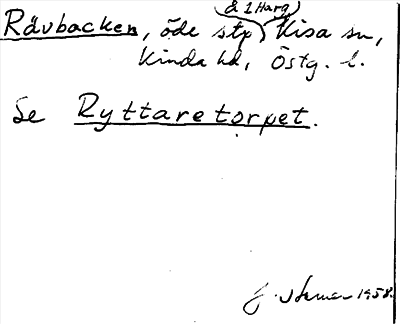 (å 1 Harg)
Rävbacken, öde stp Kisa sn,
Kinda hd, Östg. l.
Se Ryttaretorpet.
1958.